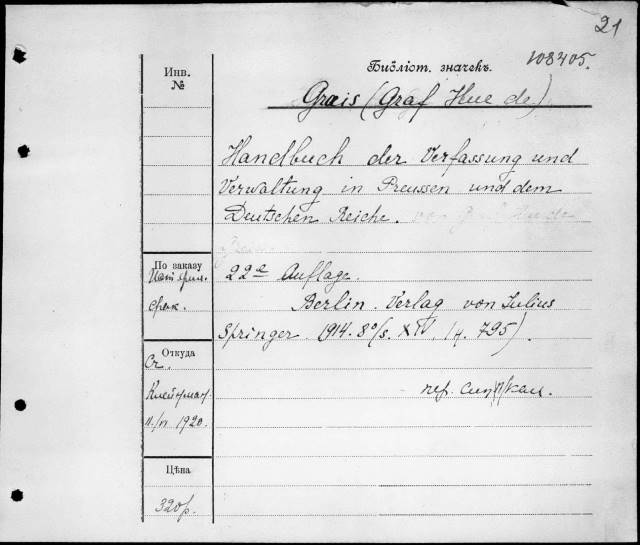 21
Библіот. значекъ.
108405.
Инв.
№
Grais (Graf Hue de)
Handbuch der Verfassung und
Verwaltung in Preussen und dem
Deutschen Reiche. von Graf Hue de
Grais
По заказу
22е Auflage.
Berlin. Verlag von Julius
Springer 1914. 8°/s. XIV, 795).
Откуда
Ст.
1920.
Цѣна
320 р.